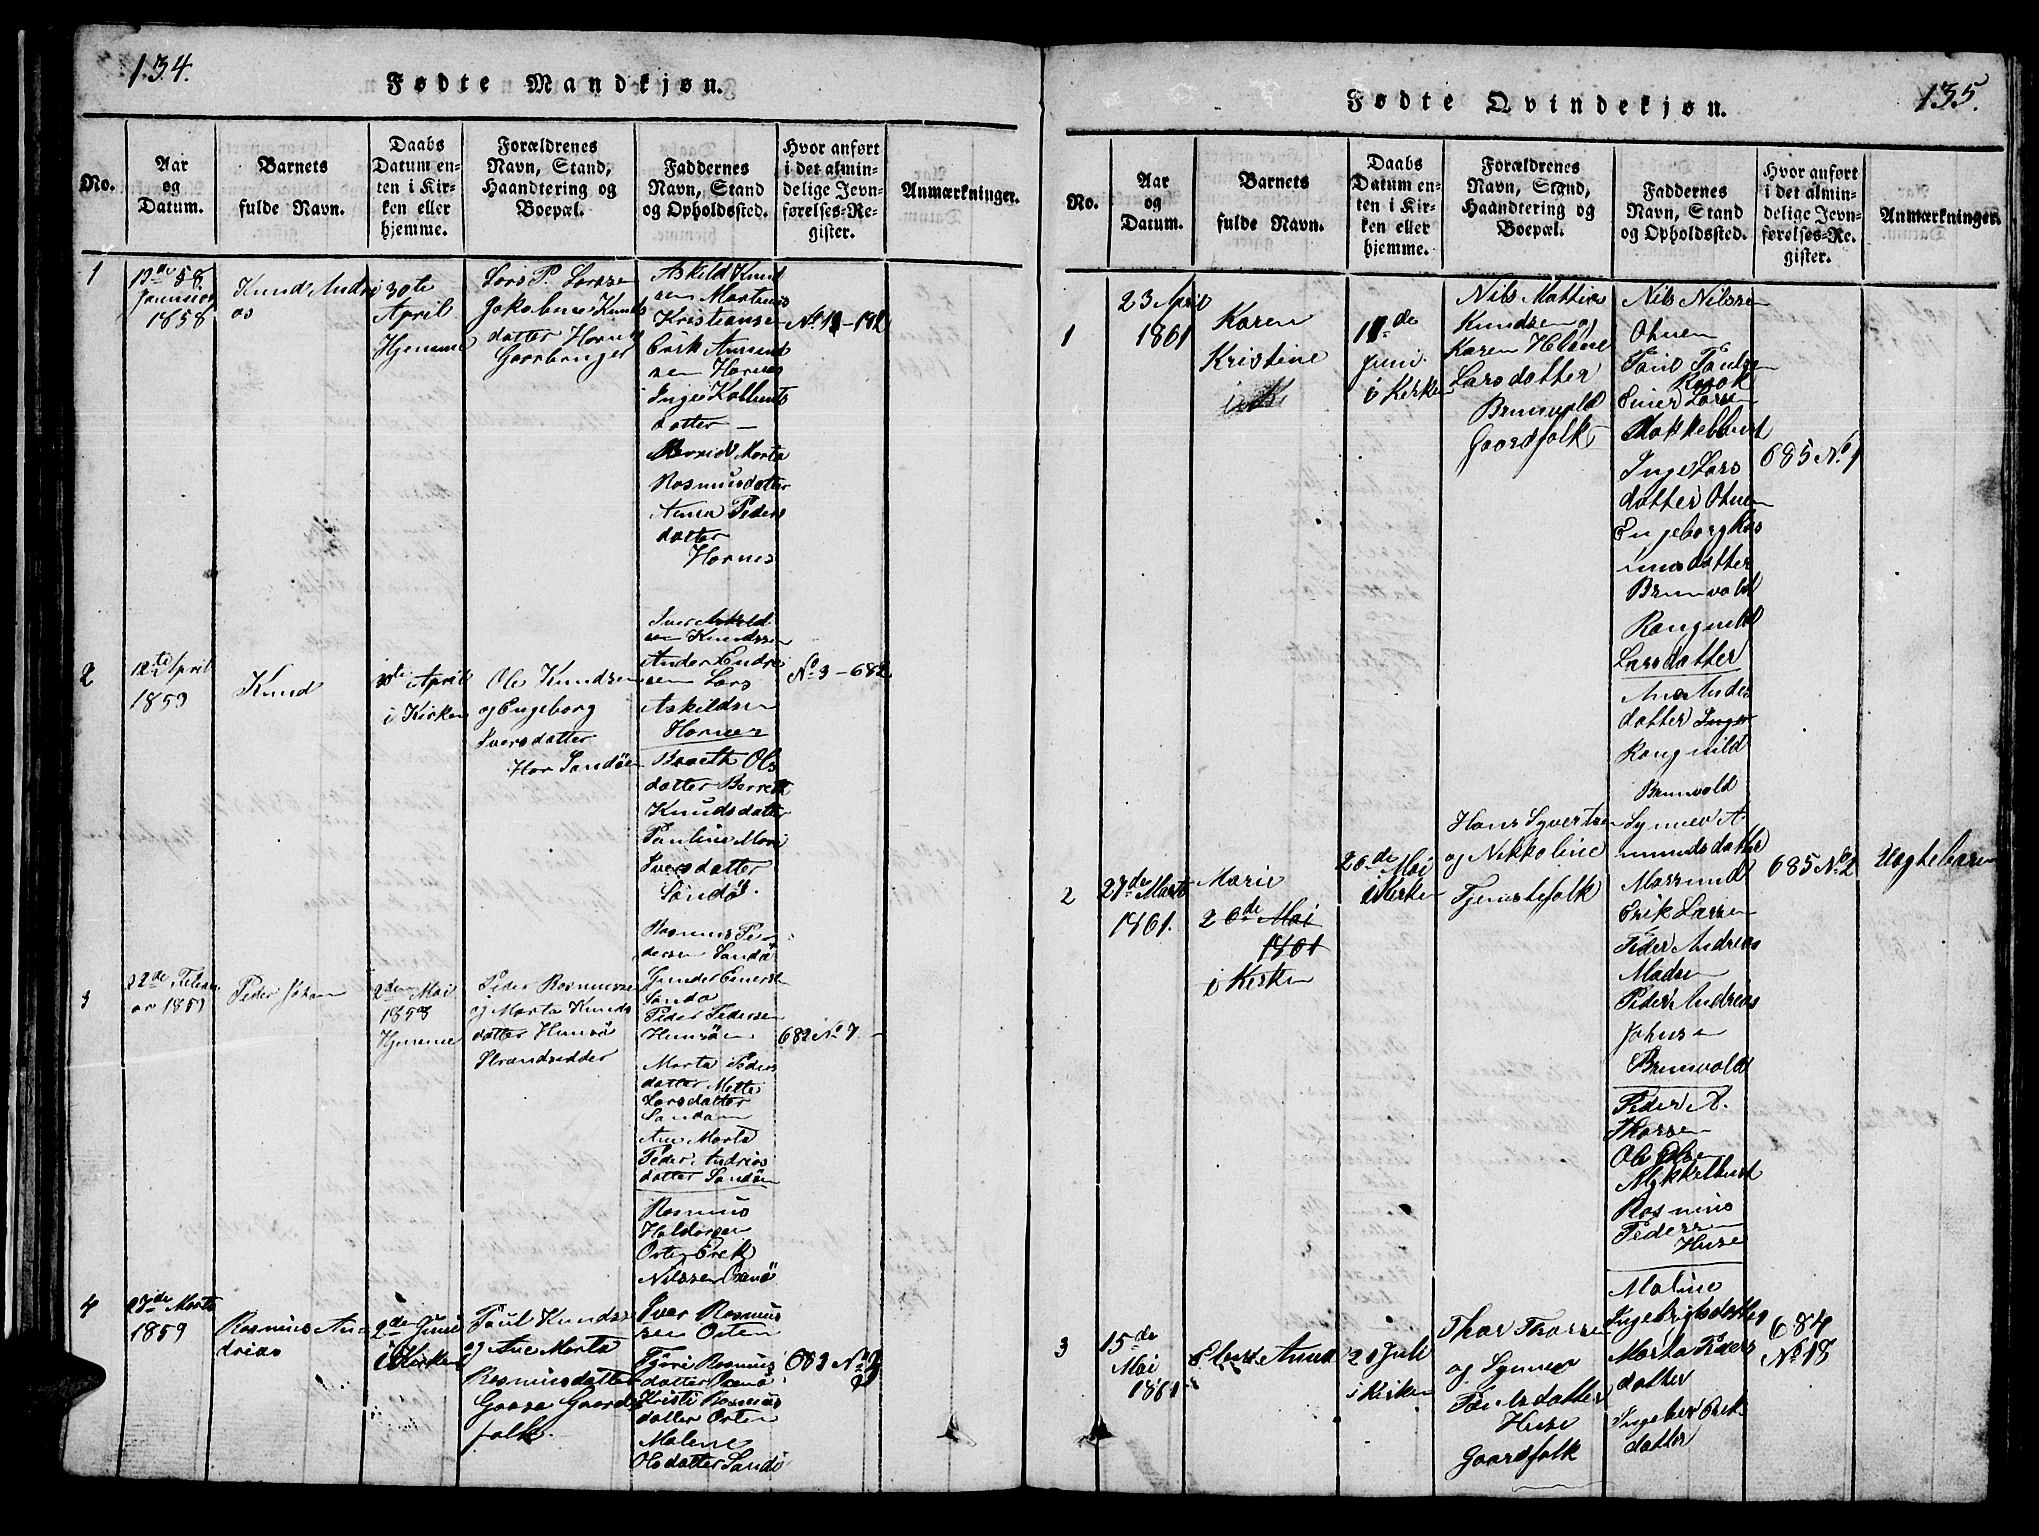 134.
Fødte Mandkjøn.
No.
Aar
og
Datum.
Barnets
fulde Navn.
Daabs
Datum en-
ten i Kir-
ken eller
hjemme.
Forældrenes
Navn, Stand,
Haandtering og
Boepæl.
Faddernes
Navn, Stand
og Opholdssted.
Hvor anført
i det almin-
delige Jevn-
førelses-Re-
gister.
Anmærkninger.
1
Januar
1858
Knud Andre
as
30te
April
Hjemme
Lars P. Larsen
Jakobine Knuds
datter Hornes
Askild Knud
sen Martinus
Kristiansen
Erik Amund
sen Hornes
Inger Kolbents
datter —
Marta
Rasmusdatter
Anna Peders
datter
Hornes
2
12te April
1859
Knud
April
i Kirken
Ole Knudsen
og Engeborg
Iversdatter
Sandøen
Iver Askild
sen Knudssen
Ander Endre
sen Lars
Askildsen
Hornes
Ols
datter Berrett
Knudsdatter
Pauline Mari
Iversdatter
Sandø.
No 3 - 682
3
22de Februar
1859
Peder Johan
2den Mai
1858
Hjemme
Peder Rasmussen
og Marta Knuds
datter Humsø
Strandsidder
Rasmus Pe
dersen Sandø
Gunder Einersen
Sandø
Peder Pedersen
Humsøen
Marta Peders
datter Mette
Larsdatter
Sandøen
Ane Marta
Peder Andrias
datter Sandøen
682 No 7 —
4
23de Marts
1859
Rasmus An
drias
2de Juni
i Kirken
Paul Knudsen
og Ane Marta
Rasmusdatter
Gaasø Gaards
folk.
Rasmus
Haldorsen
Orten Erik
Nilssen
Iver Rasmus
sen Orten
Rasmus
datter
Kristi Rasmus
datter Orten
Malene
Olsdatter Sandø
683 No 2
135.
Fødte Qvindekjøn.
No.
Aar
og
Datum.
Barnets
fulde Navn.
Daabs
Datum en-
ten i Kir-
ken eller
hjemme.
Forældrenes
Navn, Stand,
Haandtering og
Boepæl.
Faddernes
Navn, Stand
og Opholdssted.
Hvor anført
i det almin-
delige Jevn-
førelses-Re-
gister.
Anmærkninger.
1
23 April
1861
Karen
Kristine
Juni
i Kirken
Nils Mattias
Knudsen og
Karen Heline
Larsdatter
Brunvold
Gaardfolk
Nils Nilssen
Ohnen
Paul Paulsen
Einer Larsen
Inge Lars
datter Ohnen
Engeborg Ras
musdatter
Brunvold
Rangnild
Larsdatter
Ane Andes
datter Inger
Rangnild
Brunvold
685 No 1
2
27de Marts
1861.
Marie
26de Mai
1861
i Kirken
26de Mai
i Kirken
Hans Syvertsen
og Nikkoline
Tjenestefolk
Synnev A
mundsdatter
Erik Larsen
Peder Andreas
Madsen
Peder Andreas
Johnsen
Brunvold
Peder A.
Thorsen
Ole Olsen
Mykkelbust
Rasmus
Pedersen
Huse
685 No 2
Uægtebaren
3
15de
Mai
1861
Anna
21 Juli
i Kirken
Thor Thorsen
og Synnev
Paulsdatter
Huse
Gaardfolk
Maline
Ingebrigtsdatter
Marta Peders
datter
Ingeber Erik
datter
684
No 18